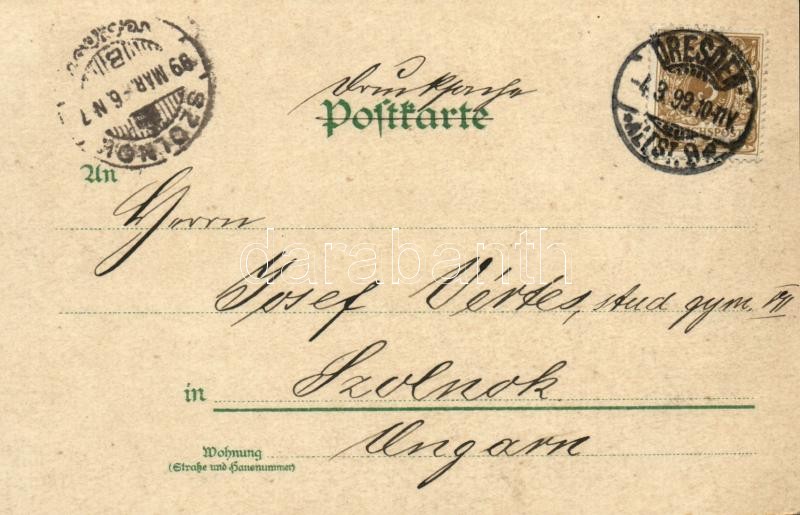 SZOLNOK
99 MAR. 6. N 7
Drucksache
Postkarte
DRESDEN
4.3.99.10-11V.
ALTST. 9
An
Herrn
darabanth
Josef Vértes, stud gym. VII
in Szolnok
Ungarn
Wohnung
(Straße und Hausnummer)